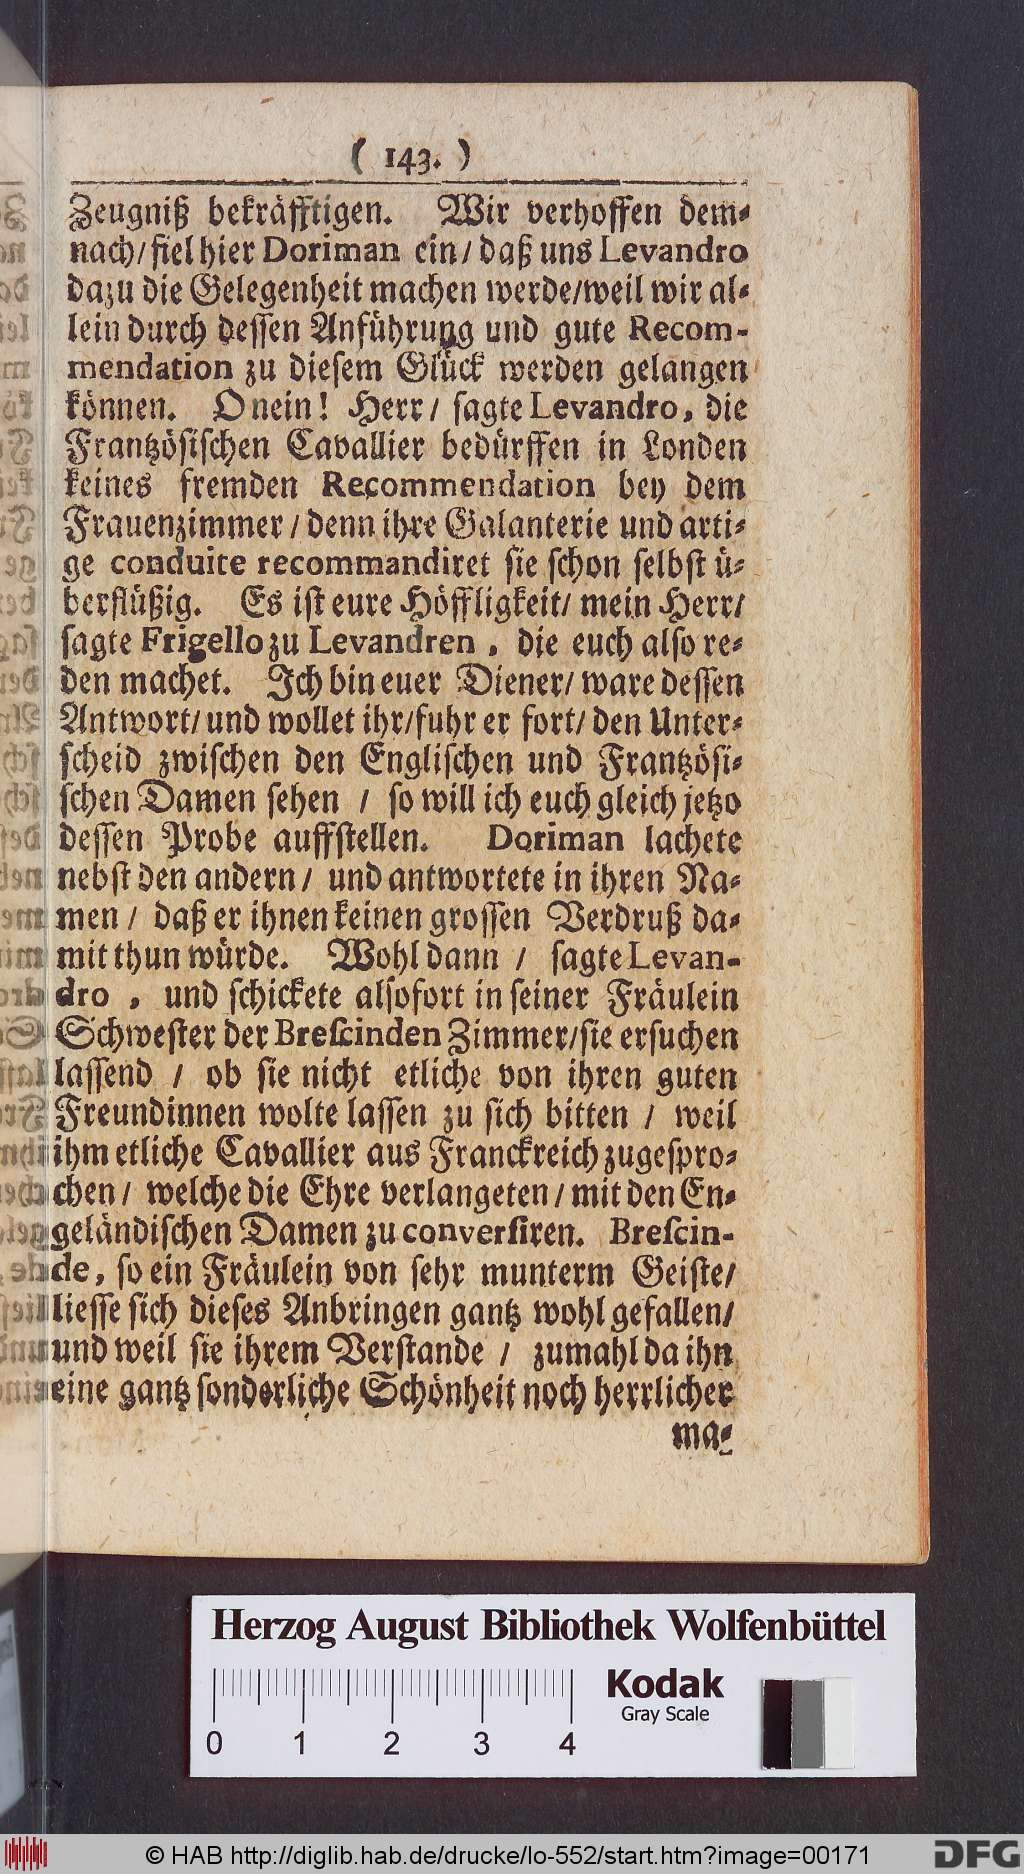 ( 143. )
Zeugniß bekräfftigen. Wir verhoffen dem-
nach/ fiel hier Doriman ein/ daß uns Levandro
dazu die Gelegenheit machen werde/weil wir al-
lein durch dessen Anführung und gute Recom-
mendation zu diesem Glück werden gelangen
können. O nein! Herr/ sagte Levandro, die
Frantzösischen Cavallier bedürffen in Londen
keines fremden Recommendation bey dem
Frauenzimmer/ denn ihre Galanterie und arti-
ge conduite recommandiret sie schon selbst ü-
berflüßig. Es ist eure Höffligkeit/ mein Herr/
sagte Frigello zu Levandren, die euch also re-
den machet. Ich bin euer Diener/ ware dessen
Antwort/ und wollet ihr/fuhr er fort/ den Unter-
scheid zwischen den Englischen und Frantzösi-
schen Damen sehen / so will ich euch gleich jetzo
dessen Probe auffstellen. Doriman lachete
nebst den andern/ und antwortete in ihren Na-
men/ daß er ihnen keinen grossen Verdruß da-
mit thun würde. Wohl dann / sagte Levan-
dro, und schickete alsofort in seiner Fräulein
Schwester der Breſcinden Zimmer/sie ersuchen
lassend / ob sie nicht etliche von ihren guten
Freundinnen wolte lassen zu sich bitten / weil
ihm etliche Cavallier aus Franckreich zugespro-
chen/ welche die Ehre verlangeten/ mit den En-
geländischen Damen zu converſiren. Breſcin-
de, so ein Fräulein von sehr munterm Geiste/
liesse sich dieses Anbringen gantz wohl gefallen/
und weil sie ihrem Verstande / zumahl da ihn
eine gantz sonderliche Schönheit noch herrlicher
ma-
Herzog August Bibliothek Wolfenbüttel
Kodak
Gray Scale
0 1 2 3 4
© HAB http://diglib.hab.de/drucke/lo-552/start.htm?image=00171
DFG